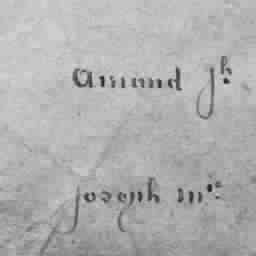 Amand Jh
joseph mie